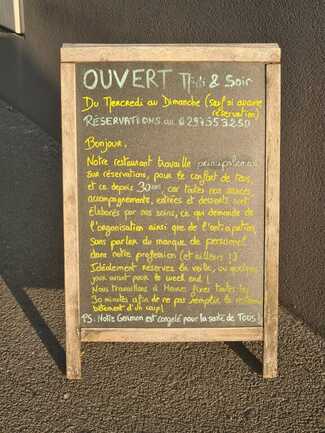 OUVERT Midi & Soir
Du Mercredi au Dimanche (sauf si aucune
réservation)
RÉSERVATIONS au 0297353250
Bonjour,
Notre restaurant travaille principalement
sur réservations, pour le confort de tous,
et ce depuis 30 ans, car toutes nos sauces
accompagnements, entrées et desserts sont
élaborés par nos soins, ce qui demande de
l'organisation ainsi que de l'anticipation,
sans parler du manque de personnel
dans notre profession (et ailleurs !)
Idéalement réservez la veille, ou quelques
jours avant pour le week end !
Nous travaillons à Heures fixes toutes les
30 minutes afin de ne pas remplir le restaurant
bêtement d'un coup !
PS : Notre Germon est congelé pour la santé de TOUS !